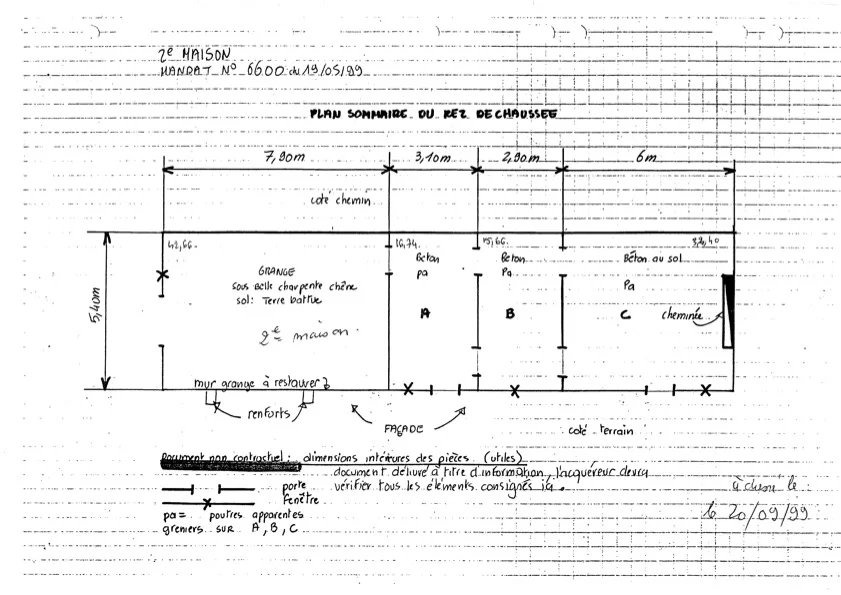 2e MAISON
MANDAT N° 6600 du 19/05/99
PLAN SOMMAIRE DU REZ DE CHAUSSEE
7,90m 3,10m 2,90m 6m
coté chemin
42,66. 16,74. 15,66. 32,40
5,40m
GRANGE
sous Belle charpente chêne
sol: Terre battue
2e maison.
Béton
pa
A
Béton
Pa
B
Béton au sol
Pa
C cheminée
mur grange à restaurer
renforts
FAÇADE
coté terrain
Document non contractuel: dimensions intérieures des pièces (utiles)
document délivré à titre d'information, l'acquéreur devra
vérifier tous les éléments consignés ici.
porte
fenêtre
pa = poutres apparentes
greniers SUR A, B, C
le 20/09/99